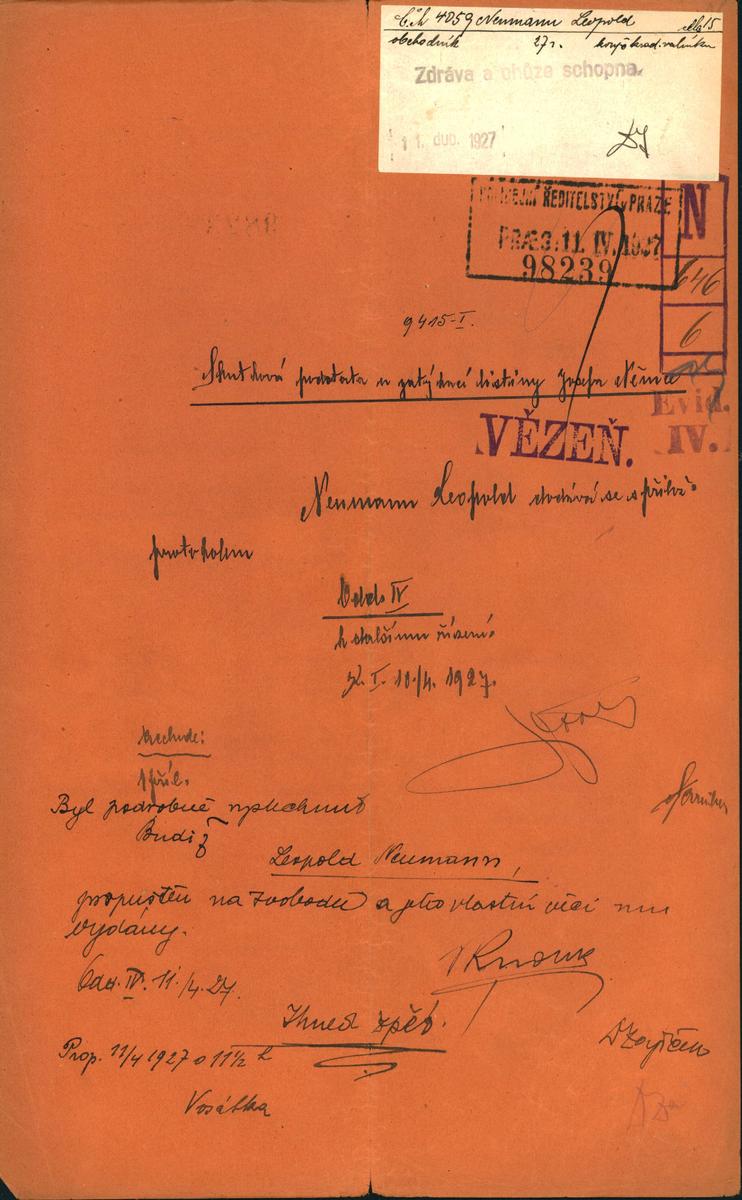 č. 4059 Neumann Leopold cela 15
obchodník 27 r.
Zdráva a chůze schopna.
11. dub. 1927
POLICEJNÍ ŘEDITELSTVÍ v PRAZE
11. IV. 1927
98239
N
646
6
9415-I.
Skutková podstata u zatýkací listiny Josefa Němce
Evid.
IV.
VĚZEŇ.
Neumann Leopold dodává se s přilož.
protokolem
Odd. IV
k dalšímu řízení.
I. 10./4. 1927.
1 příl.
Byl podrobně vyslechnut
Budiž
Leopold Neumann,
propuštěn na svobodu a jeho vlastní věci mu
vydány.
Odd. IV. 11./4. 27.
Ihned zpět.
Prop. 11/4 1927 o 11½ h
Vosátka